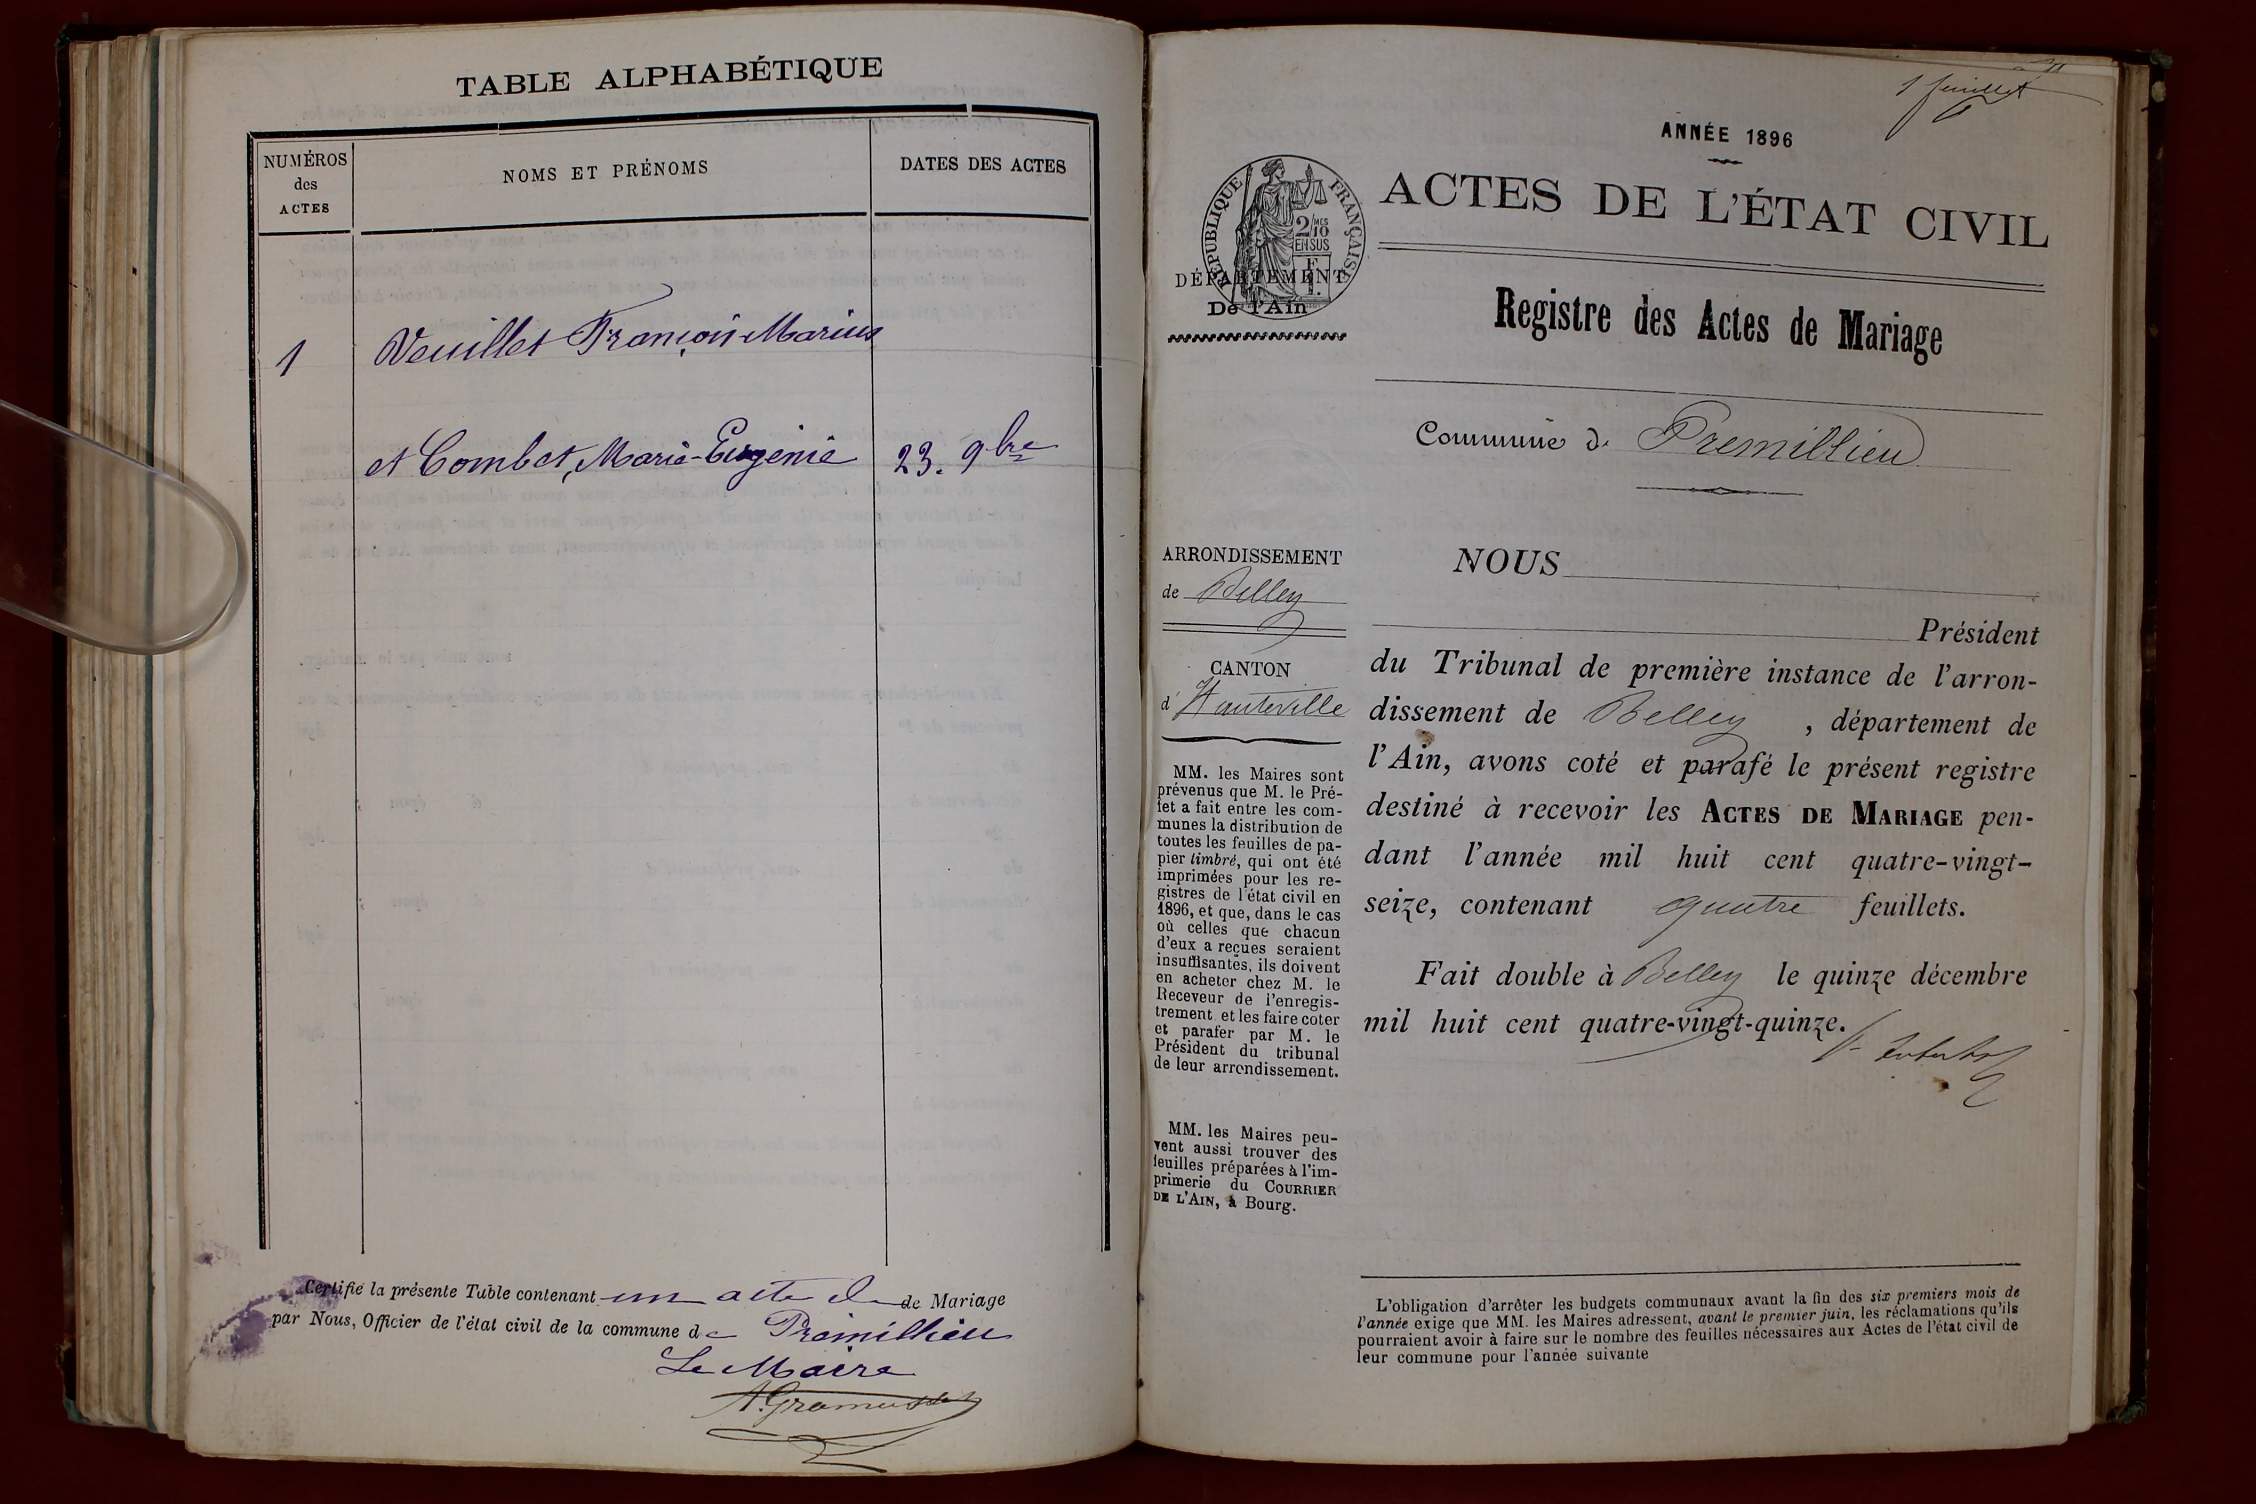 TABLE ALPHABÉTIQUE
NUMÉROS
des
ACTES
NOMS ET PRÉNOMS
DATES DES ACTES
1 Veuillet François Marius
et Combet, Marie-Eugénie 23. 9bre
Certifié la présente Table contenant un acte de Mariage
par Nous, Officier de l'état civil de la commune de Prémillieu
Le Maire
1 feuillet
ANNÉE 1896
ACTES DE L'ÉTAT CIVIL
RÉPUBLIQUE FRANÇAISE
2/10 MES
EN SUS
DÉPARTEMENT
De l'Ain
Registre des Actes de Mariage
Commune de Premillieu
ARRONDISSEMENT
de Belley
CANTON
d'Hauteville
MM. les Maires sont
prévenus que M. le Pré-
fet a fait entre les com-
munes la distribution de
toutes les feuilles de pa-
pier timbré, qui ont été
imprimées pour les re-
gistres de l'état civil en
1896, et que, dans le cas
où celles que chacun
d'eux a reçues seraient
insuffisantes, ils doivent
en acheter chez M. le
Receveur de l'enregis-
trement et les faire coter
et parafer par M. le
Président du tribunal
de leur arrondissement.
MM. les Maires peu-
vent aussi trouver des
feuilles préparées à l'im-
primerie du COURRIER
DE L'AIN, à Bourg.
NOUS
Président
du Tribunal de première instance de l'arron-
dissement de Belley, département de
l'Ain, avons coté et parafé le présent registre
destiné à recevoir les ACTES DE MARIAGE pen-
dant l'année mil huit cent quatre-vingt-
seize, contenant quatre feuillets.
Fait double à Belley le quinze décembre
mil huit cent quatre-vingt-quinze.
L'obligation d'arrêter les budgets communaux avant la fin des six premiers mois de
l'année exige que MM. les Maires adressent, avant le premier juin, les réclamations qu'ils
pourraient avoir à faire sur le nombre des feuilles nécessaires aux Actes de l'état civil de
leur commune pour l'année suivante